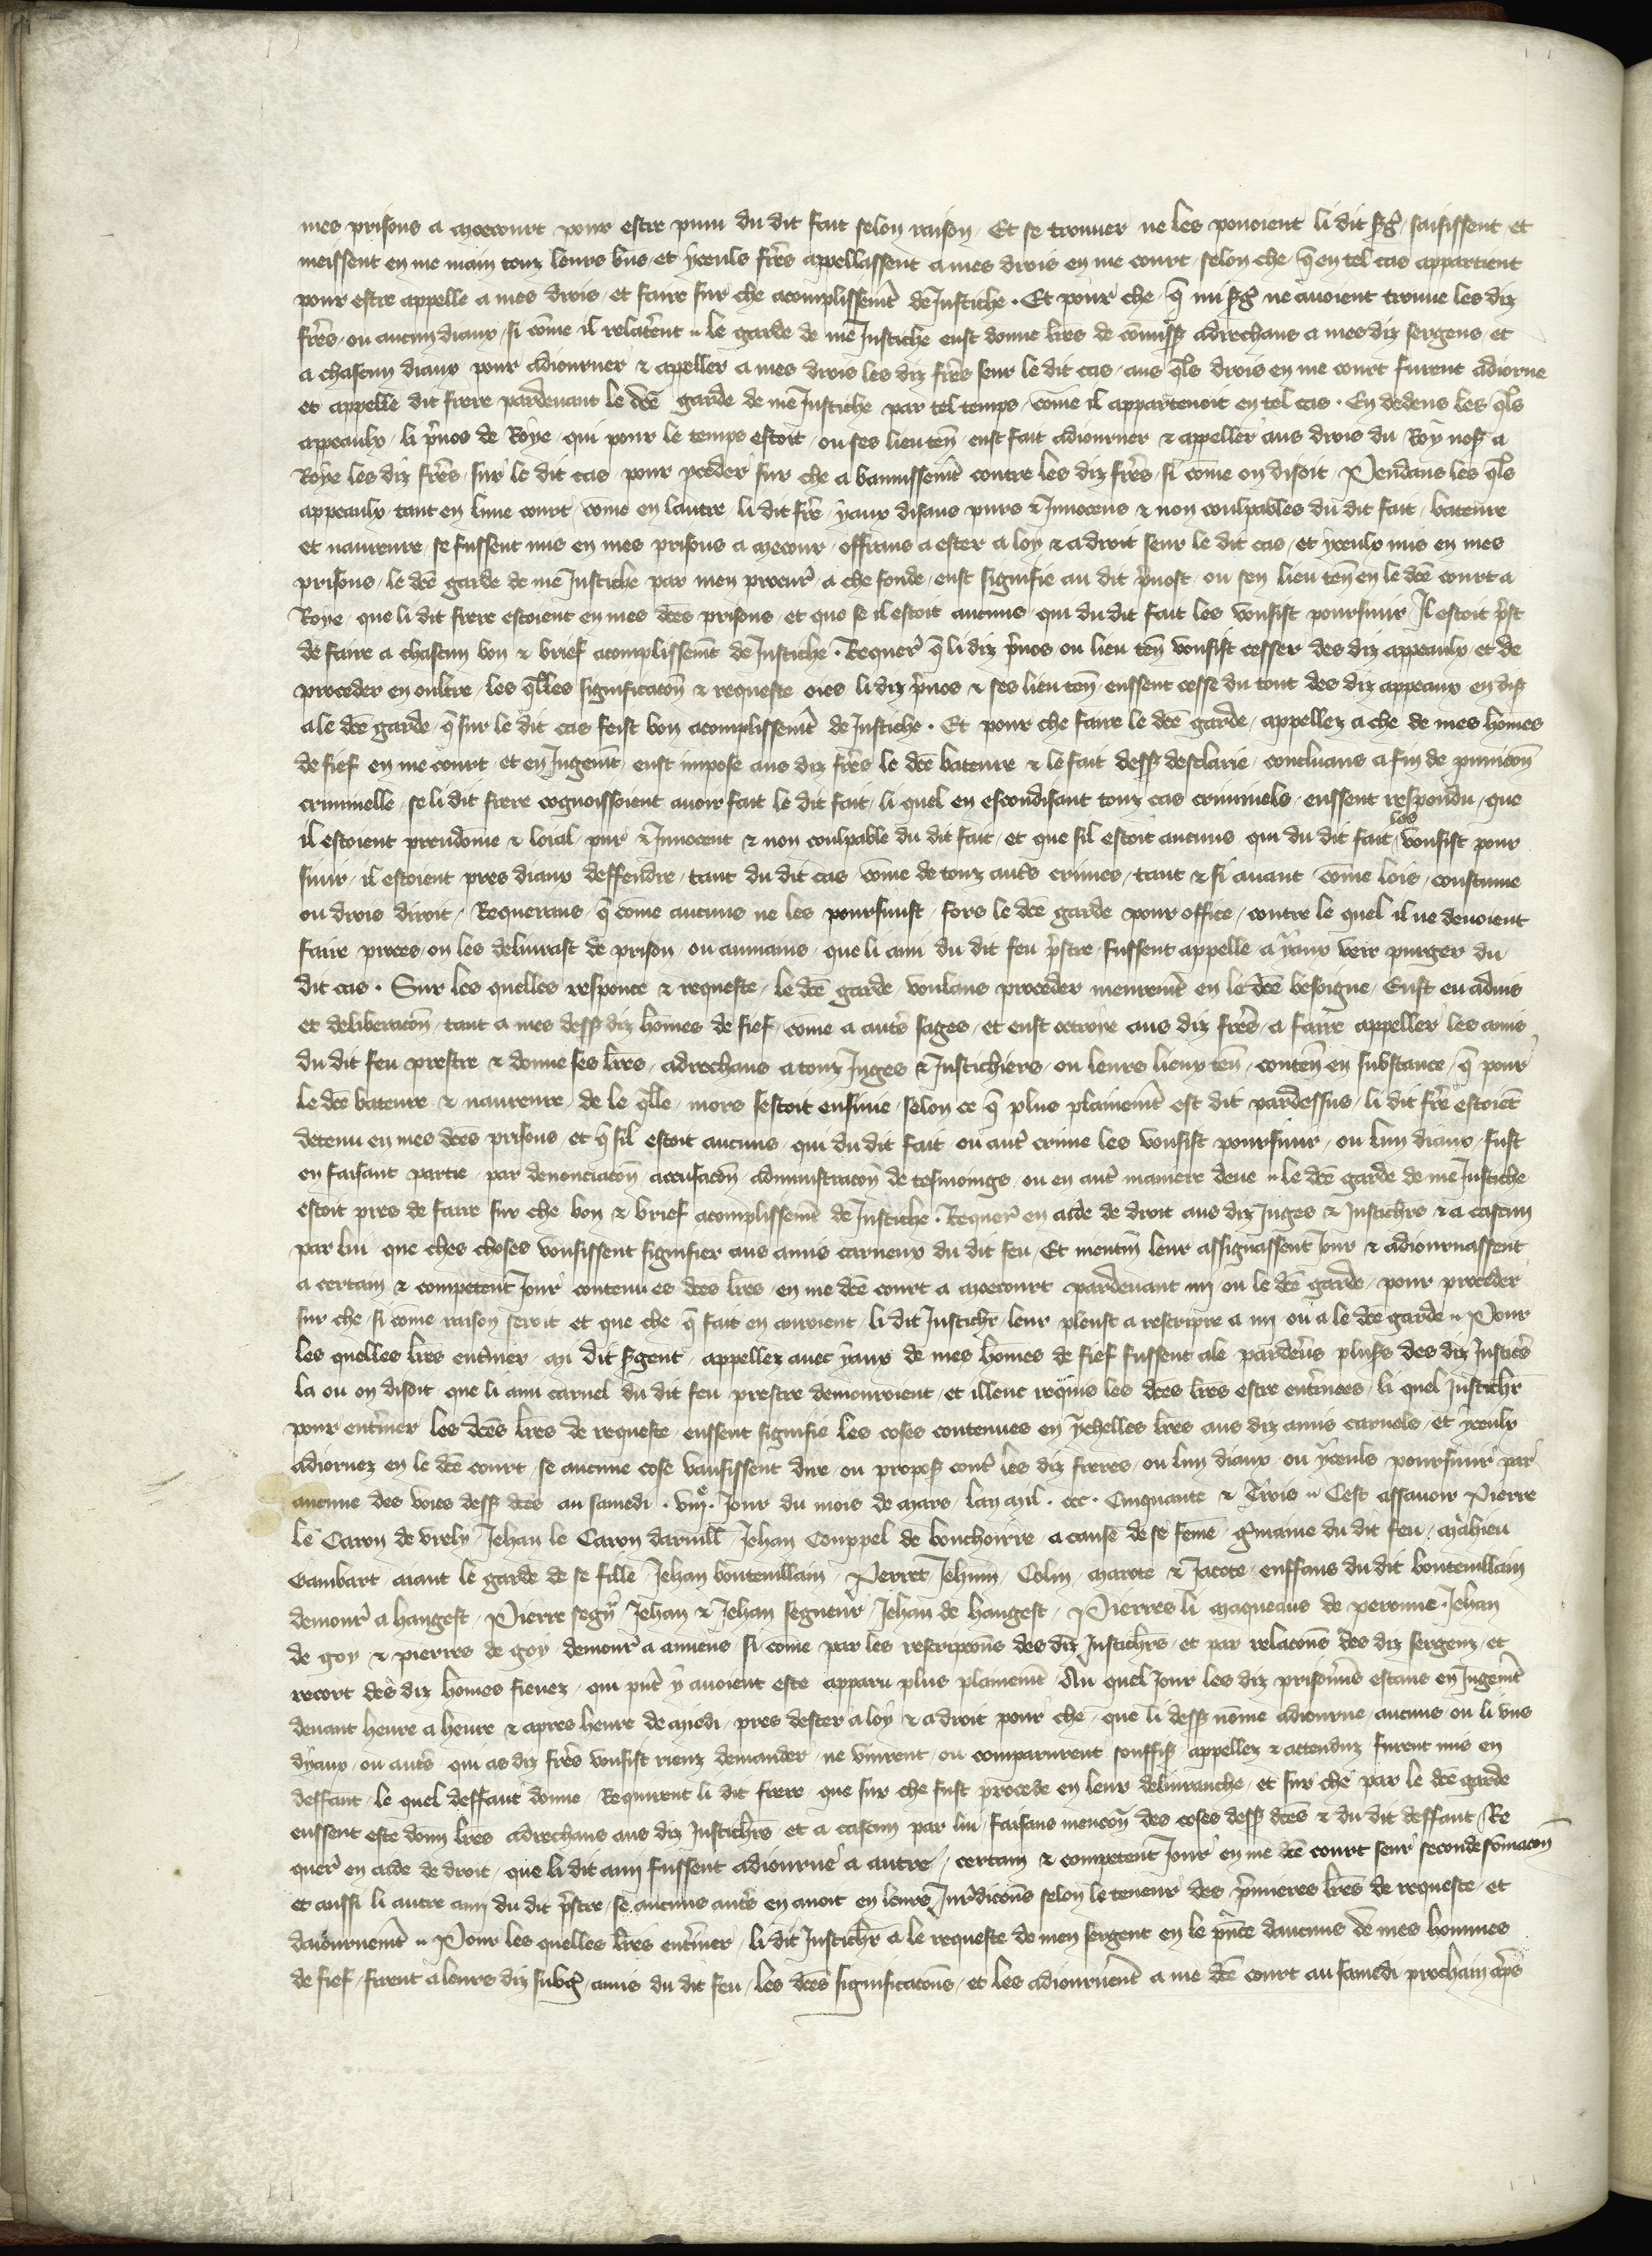 mes prisons a moecourt pour estre puni du dit fait selon raison / Et se trouuer ne les pouoient li dit sg̃ / saisissent et
meissent en me main touz leurs bñs / et yceuls fr̃es appellassent a mes drois en me court / selon che / q̃ en tel cas appartient
pour estre appelle a mes drois / et faire sur che acomplissemt̃ de Justiche . Et pour che / q̃ mi sg̃ ne auoient trouue les diz
fr̃es / ou aucun diaux / si cõme il relater̃ent // le garde de me Justiche eust donne lr̃es de cõmiss̃ adrechans a mes diz sergens / et
a chascun diaux pour adiourner & apeller a mes drois les diz fr̃es seur le dit cas / aus q̃ls drois en me court furent adiorne
et appelle dit frere pardeuant le dc̃e garde de me Justiche par tel temps / cõme il appartenoit en tel cas . En dedens les q̃ls
apeaulx / li p̃uos de Roye / qui pour le temps estoit / ou ses lieuten̄ eust fait adiourner & appeller aus drois du Roy nos̃ a
Roye les diz fr̃es / sur le dit cas / pour p̃ceder sur che a bannissemt̃ contre les diz fr̃es / si cõme on disoit / Pendans les q̃ls
appeaulx / tant en lune court / cõme en lautre / li dit fr̃e / yaux disans purs & Innocens & non coulpables du dit fait / bateure
et naureure / se fussent mis en mes prisons a moecour / offrans a ester a loy & a droit seur le dit cas / et yceulx mis en mes
prisons / le dc̃e garde de me Justiche par men procur̃ / a che fonde / eust signifie au dit p̃uost / ou sen lieu ten̄ en le dc̃e court a
Roye / que li dit frere estoient en mes dc̃es prisons / et que se il estoit aucuns / qui du dit fait les vousist poursuiir / Il estoit p̃st
de faire a chascun bon & brief acomplissemt̃ de Justiche . Requer̃ q̃ li diz p̃uos ou lieu ten̄ vousist cesser des diz appeaulx / et de
proceder en oultre / les q̃lles significacon̄ & requeste oies li diz p̃uos & ses lieu ten̄ / eussent cesse du tout des diz appeaux en dis̃
a le dc̃e garde / q̃ sur le dit cas feist bon acomplissemt̃ de Justiche . Et pour che faire le dc̃e garde / appellez a che de mes hõmes
de fief en me court / et en Jugemt̃ / eust impose aus diz fr̃es le dc̃e bateure & le fait dess̃ desclarie / concluans a fin de punicon̄
criminelle / se li dit frere cognoissoient auoir fait le dit fait / li quel en escondisant touz cas criminels / eussent respondu / que
il estoient preudõme & loial / pur & Innocent & non coulpable du dit fait / et que sil estoit aucuns qui du dit fait les vousist pour
suiir / il estoient pres diaux deffendre / tant du dit cas / cõme de touz aut̃s crimes / tant & si auant cõme lois / coustume
ou drois diroit / Requerans / q̃ cõme aucuns ne les poursuist / fors le dc̃e garde pour office / contre le quel il ne deuoient
faire proces / on les deliurast de prison / ou aumains / que li ami du dit feu p̃stre / fussent appelle a yaux veir purger du
dit cas . Sur les quelles responce & requeste / le dc̃e garde / voulans proceder meuremt̃ en le dc̃e besoigne / Eust eu aduis
et deliberacon̄ / tant a mes dess̃ diz hõmes de fief / cõme a aut̃s sages / et eust octroye aus diz fr̃es / a faire appeller les amis
du dit feu prestre & donne ses lr̃es / adrechans a touz Juges & Justichiers / ou leurs lieux ten̄ / conten̄ en substance / q̃ pour
le dc̃e bateure & naureure / de le q̃lle / mors sestoit ensuiie / selon ce q̃ plus plainemt̃ est dit pardessus / li dit fr̃e estoiẽt
detenu en mes dc̃es prisons / et q̃ sil estoit aucuns / qui du dit fait ou aut̃ crime les vousist poursuiir / ou lun diaux / fust
en faisant partie / par denonciacon̄ accusacon̄ / administracon̄ de tesmoings / ou en aut̃ maniere deue // le dc̃e garde de me Justiche
estoit pres de faire sur che bon & brief acomplissemt̃ de Justiche . Requer̃ en aide de droit aus diz Juges & Justichr̃s & a cascun
par lui que ches choses vousissent signifier aus amis carneux du dit feu / Et mentm̃ leur assignassent Jour & adiournassent
a certain & competent Jour contenu es dc̃es lr̃es / en me dc̃e court a moecourt pardeuant mi ou le dc̃e garde / pour proceder
sur che / si cõme raison seroit et que che q̃ fait en auroient / li dit Justichr̃ leur pleust a rescripre a mi ou a le dc̃e garde // Pour
les quelles lr̃es enter̃iner / mi dit s̃gent / appellez auec yaux de mes hõmes de fief fussent ale / pardeuers pluss̃ des diz Justic̃s
la ou on disoit / que li ami carnel du dit feu / prestre demouroient / et illeuc requis les dc̃es lr̃es estre enter̃inees / li quel Justichr̃
pour enter̃iner les dc̃es lr̃es de requeste / eussent signifie les coses contenues en ychelles lr̃es aus diz amis carnels / et yceulx
adiornez en le dc̃e court / se aucune cose vausissent dire / ou propos̃ cont̃ les diz freres / ou lun diaux / ou yceuls poursuiir par
aucune des voies dess̃ dc̃es au samedi . viij.e Jour du mois de mars / lan mil . ccc . Cinquante & Trois // Cest assauoir Pierre
le Caron de vrely / Jehan le Caron daruill̃ / Jehan Couppel de bouchoirre / a cause de se fẽme / g̃maine du dit feu / Mahieu
Gambart aiant le garde de se fille / Jehan bouteuillain / Perret Jehnin / Colin / Marote & Jacote / enffans du dit bouteuillain
demour̃ a hangest / Pierre segñ / Jehan & Jehan segneur / Jehan de hangest / Pierres li maqueaus de peronne / Jehan
de goy & pierres de goy / demour̃ a amiens / si cõme par les rescripcon̄s des diz Justichr̃s / et par relacon̄s des diz sergenz / et
recort des diz hõmes fieuez / qui p̃nt̃ y auoient este apparu plus plainemt̃ / Au quel Jour les diz prisonñs estans en Jugemt̃
deuant heure a heure & apres heure de midi / pres dester a loy & a droit pour che / que li dess̃ nõme adiourne / aucuns / ou li vns
dyaux / ou aut̃s qui as diz fr̃es vousist riens demander / ne vinrent / ou comparurent souffis̃ appellez & attenduz / furent mis en
deffaut / le quel deffaut donne / Requirent li dit frere / que sur che fust procede en leur deliuranche / et sur che par le dc̃e garde
eussent este donn lr̃es adrechans aus diz Justichr̃s / et a cascun par lui / faisans mencon̄ des coses dess̃ dc̃es & du dit deffaut / Re
quer̃ en aide de droit / que li dit ami fussent adiourne a autre / certain & competent Jour en me dc̃e court seur seconde sõmacon̄
et aussi li autre ami du dit p̃stre / se aucuns aut̃s en auoit en leurs Jur̃dicon̄s selon le teneur des p̃mieres lr̃es de requeste / et
daiournemt̃ // Pour les quelles lr̃es enter̃iner / li dit Justichr̃ a le requeste de men sergent en le p̃nce daucuns de mes hommes
de fief / firent a leurs diz subg̃ / amis du dit feu / les dc̃es significacon̄s / et les adiournerẽt a me dc̃e court au samedi prochain ap̃s